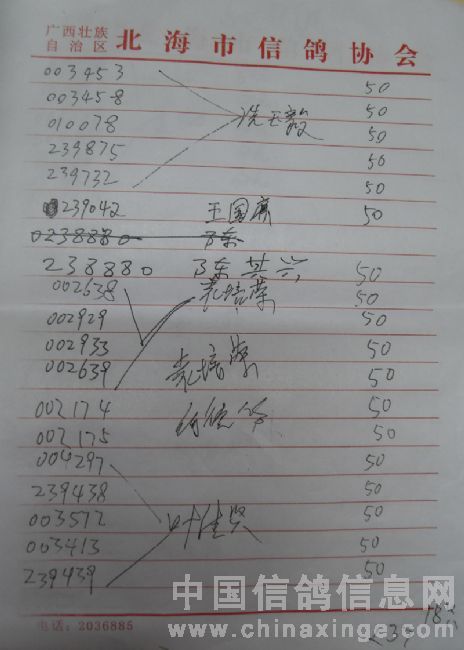 广西壮族
自治区 北海市信鸽协会
003453 50
003458 50
010078 冼玉毅 50
239875 50
239732 50
239042 王国 50
0238880 陈
238880 陈其兴 50
002638 袁培荣 50
002929 50
002933 50
002639 袁培荣 50
002174 50
002175 50
004297 50
239438 50
003572 叶佳贤 50
003413 50
239439 50
电话：2036885
中国信鸽信息网
www.chinaxinge.com